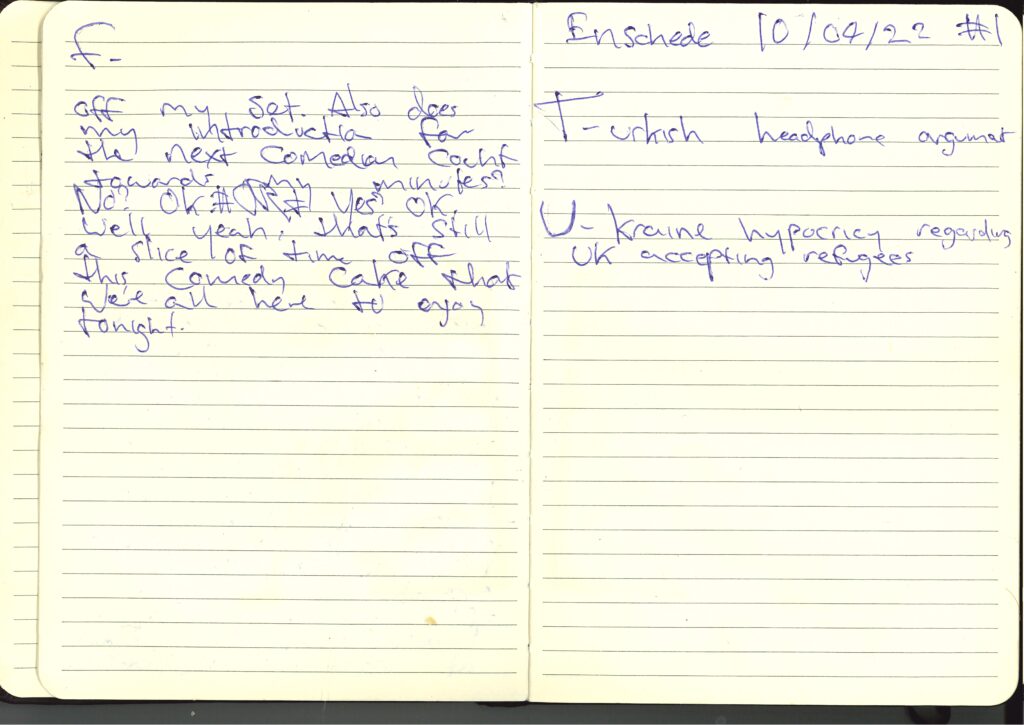 f-
off my set. Also does
my introductia for
the next Comedian Count
towards my minutes?
No? Ok. Yes? OK.
Well yeah, thats still
a slice of time off
this Comedy Cake that
we're all here to enjoy
tonight.
Enschede 10/04/22 #1
T-urkish headphone argumat
U-kraine hypocricy regarding
UK accepting refugees